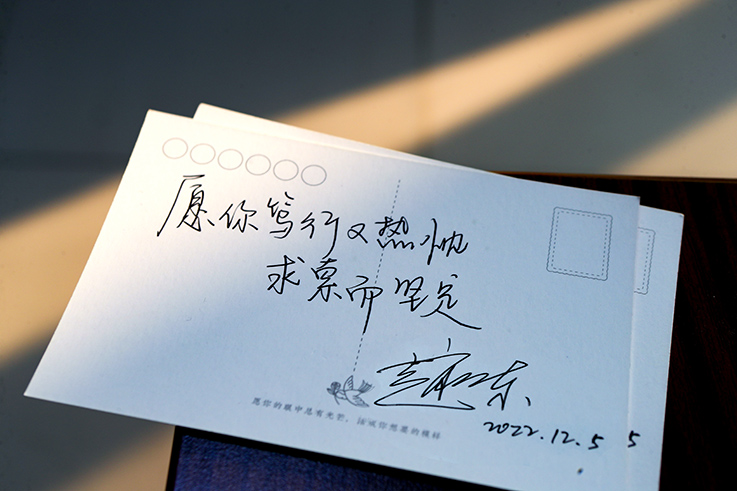 愿你笃行又热忱
求索而坚定
2022.12.5
5
愿你的眼中总有光芒，活成你想要的模样